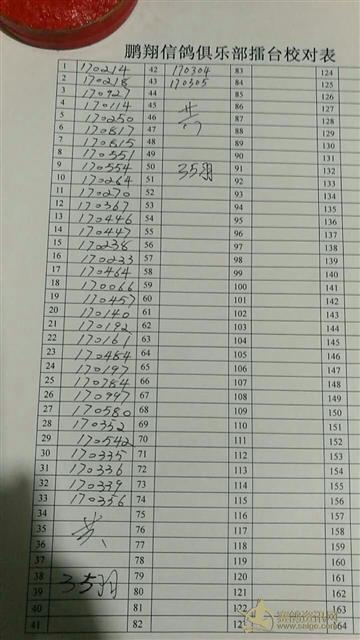 鹏翔信鸽俱乐部擂台校对表
1 170214 42 170304 83 124
2 170218 43 170305 84 125
3 170927 44 85 126
4 170114 45 共 86 127
5 170250 46 87 128
6 170817 47 88 129
7 170815 48 89 130
8 170551 49 90 131
9 170554 50 35羽 91 132
10 170264 51 92 133
11 170270 52 93 134
12 170367 53 94 135
13 170446 54 95 136
14 170447 55 96 137
15 170238 56 97 138
16 170233 57 98 139
17 170464 58 99 140
18 170066 59 100 141
19 170457 60 101 142
20 170140 61 102 143
21 170192 62 103 144
22 170161 63 104 145
23 170484 64 105 146
24 170197 65 106 147
25 170784 66 107 148
26 170997 67 108 149
27 170580 68 109 150
28 170352 69 110 151
29 170542 70 111 152
30 170335 71 112 153
31 170336 72 113 154
32 170339 73 114 155
33 170356 74 115 156
34 75 116 157
35 共 76 117 158
36 77 118 159
37 78 119 160
38 35羽 79 120 161
39 80 121 162
40 81 122 163
41 82 164
赛鸽资讯网
www.saige.com